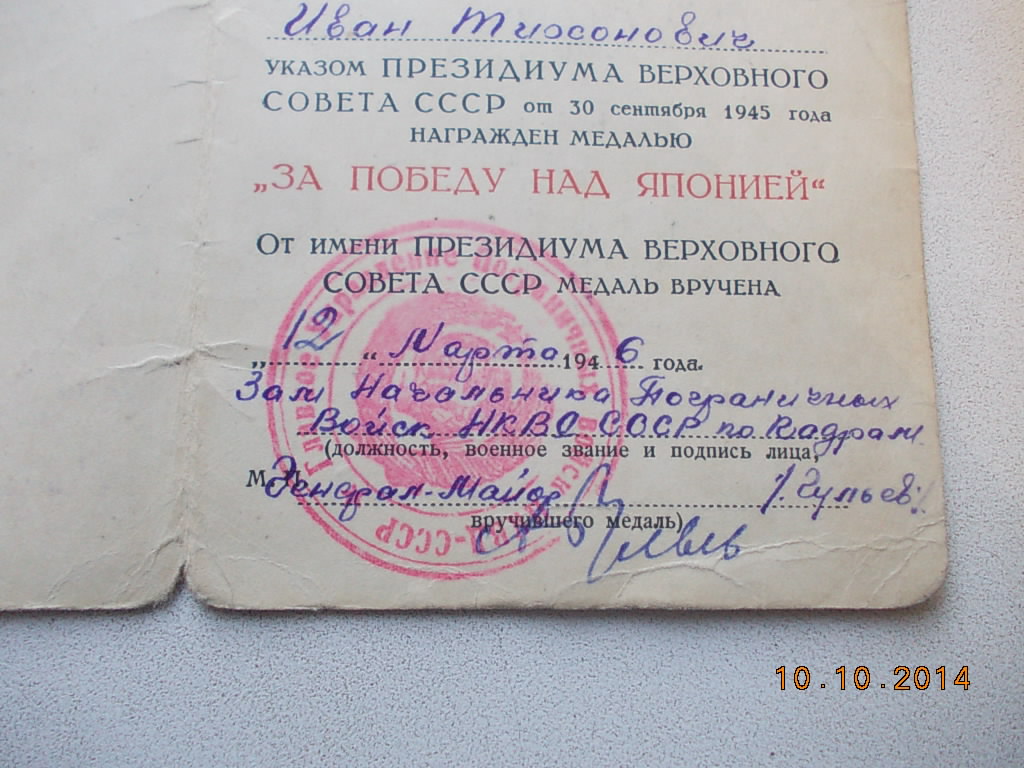 Иван Тихонович
УКАЗОМ ПРЕЗИДИУМА ВЕРХОВНОГО
СОВЕТА СССР от 30 сентября 1945 года
НАГРАЖДЕН МЕДАЛЬЮ
„ЗА ПОБЕДУ НАД ЯПОНИЕЙ“
ОТ ИМЕНИ ПРЕЗИДИУМА ВЕРХОВНОГО
СОВЕТА СССР МЕДАЛЬ ВРУЧЕНА
„12“ Марта 1946 года.
Зам Начальника Пограничных
Войск НКВД СССР по Кадрам
(должность, военное звание и подпись лица,
М. П.
Генерал-Майор
вручившего медаль)
Главное Управление Пограничных Войск НКВД-СССР
10.10.2014